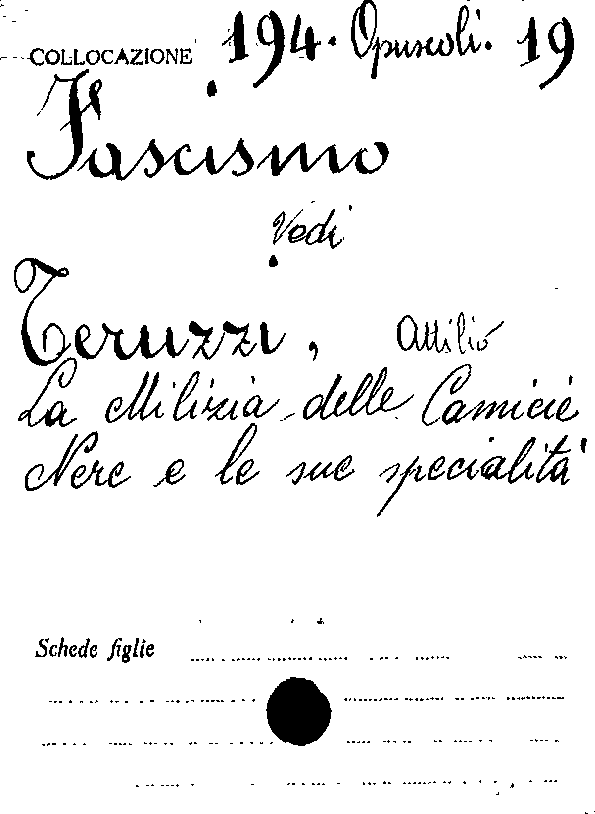 COLLOCAZIONE 194. Opuscoli. 19
Fascismo
Vedi
Teruzzi, Attilio
La Milizia delle Camicie
Nere e le sue specialità
Schede figlie